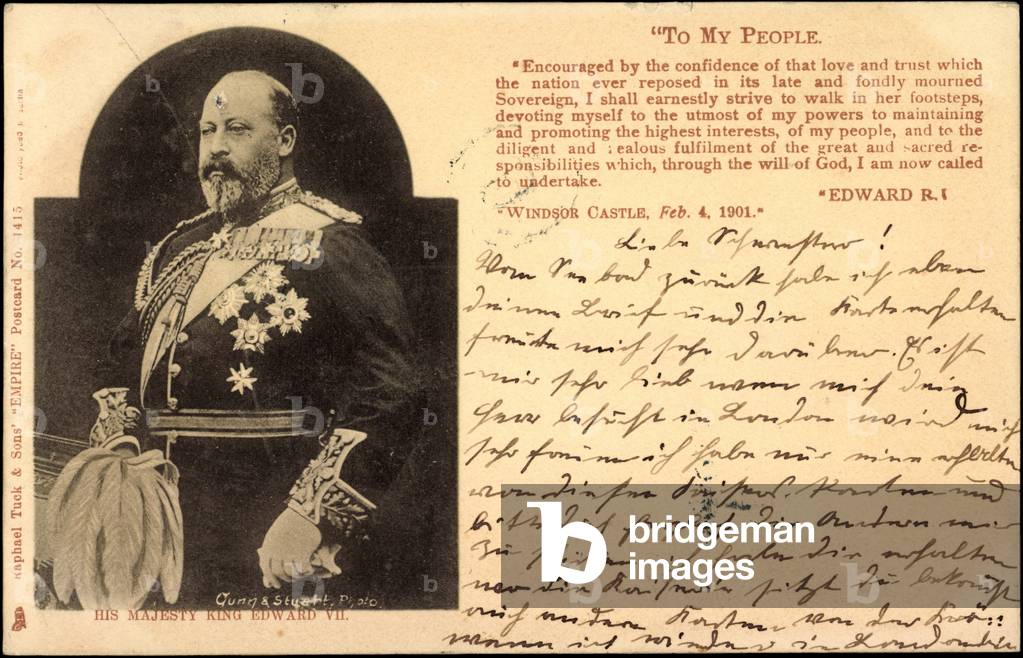 "TO MY PEOPLE.
"Encouraged by the confidence of that love and trust which
the nation ever reposed in its late and fondly mourned
Sovereign, I shall earnestly strive to walk in her footsteps,
devoting myself to the utmost of my powers to maintaining
and promoting the highest interests, of my people, and to the
diligent and zealous fulfilment of the great and sacred re-
sponsibilities which, through the will of God, I am now called
to undertake.
"EDWARD R.I
"WINDSOR CASTLE, Feb. 4, 1901."
Liebe !
Vom Seebad zurück habe ich eben
deinen Brief und die Karte erhalten
freute mich sehr darüber. Es ist
mir sehr lieb wenn mich dein
Herr besucht in London wird mich
sehr freuen ich habe nur eine erhalten
von diesen Karten und
bitte dich die andern mir
zu die erhalten
wo die sitzt du bekommst
auch andere Karten von der
wenn ich wieder in London bin
Raphael Tuck & Sons' "EMPIRE" Postcard No. 1415
Gunn & Stuart, Photo
HIS MAJESTY KING EDWARD VII.
bridgeman
images